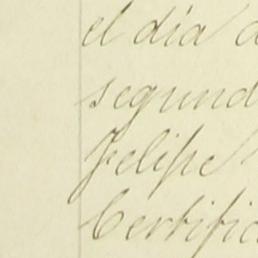 el día
segund
Felipe
Certific